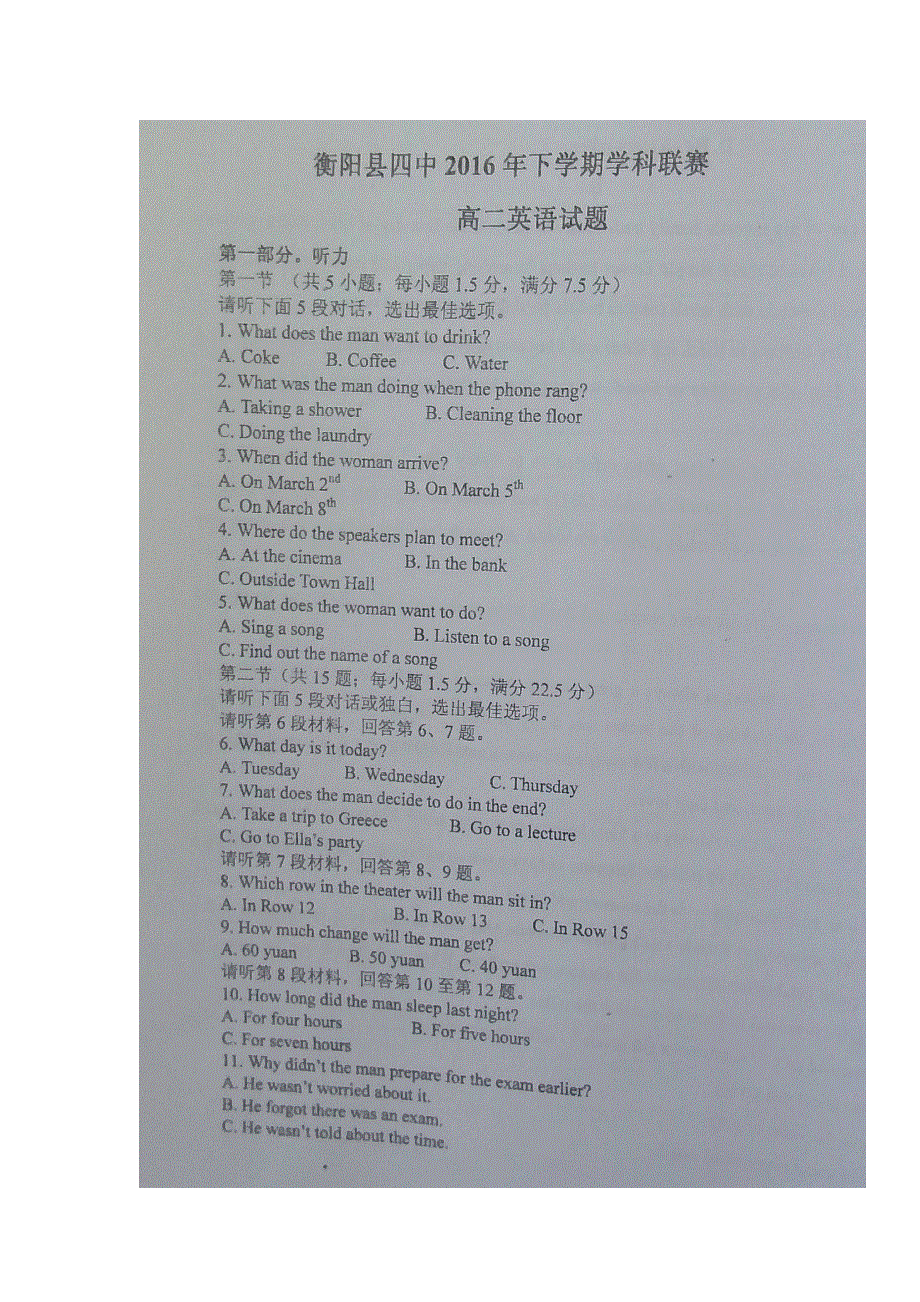 衡阳县四中 2016 年下学期学科联赛
高二英语试题
第一部分。听力
第一节 （共 5 小题；每小题 1.5 分，满分 7.5 分）
请听下面 5 段对话，选出最佳选项。
1. What does the man want to drink?
A. Coke B. Coffee C. Water
2. What was the man doing when the phone rang?
A. Taking a shower B. Cleaning the floor
C. Doing the laundry
3. When did the woman arrive?
A. On March 2nd B. On March 5th
C. On March 8th
4. Where do the speakers plan to meet?
A. At the cinema B. In the bank
C. Outside Town Hall
5. What does the woman want to do?
A. Sing a song B. Listen to a song
C. Find out the name of a song
第二节（共 15 题；每小题 1.5 分，满分 22.5 分）
请听下面 5 段对话或独白，选出最佳选项。
请听第 6 段材料，回答第 6、7 题。
6. What day is it today?
A. Tuesday B. Wednesday C. Thursday
7. What does the man decide to do in the end?
A. Take a trip to Greece B. Go to a lecture
C. Go to Ella's party
请听第 7 段材料，回答第 8、9 题。
8. Which row in the theater will the man sit in?
A. In Row 12 B. In Row 13 C. In Row 15
9. How much change will the man get?
A. 60 yuan B. 50 yuan C. 40 yuan
请听第 8 段材料，回答第 10 至第 12 题。
10. How long did the man sleep last night?
A. For four hours B. For five hours
C. For seven hours
11. Why didn't the man prepare for the exam earlier?
A. He wasn't worried about it.
B. He forgot there was an exam.
C. He wasn't told about the time.